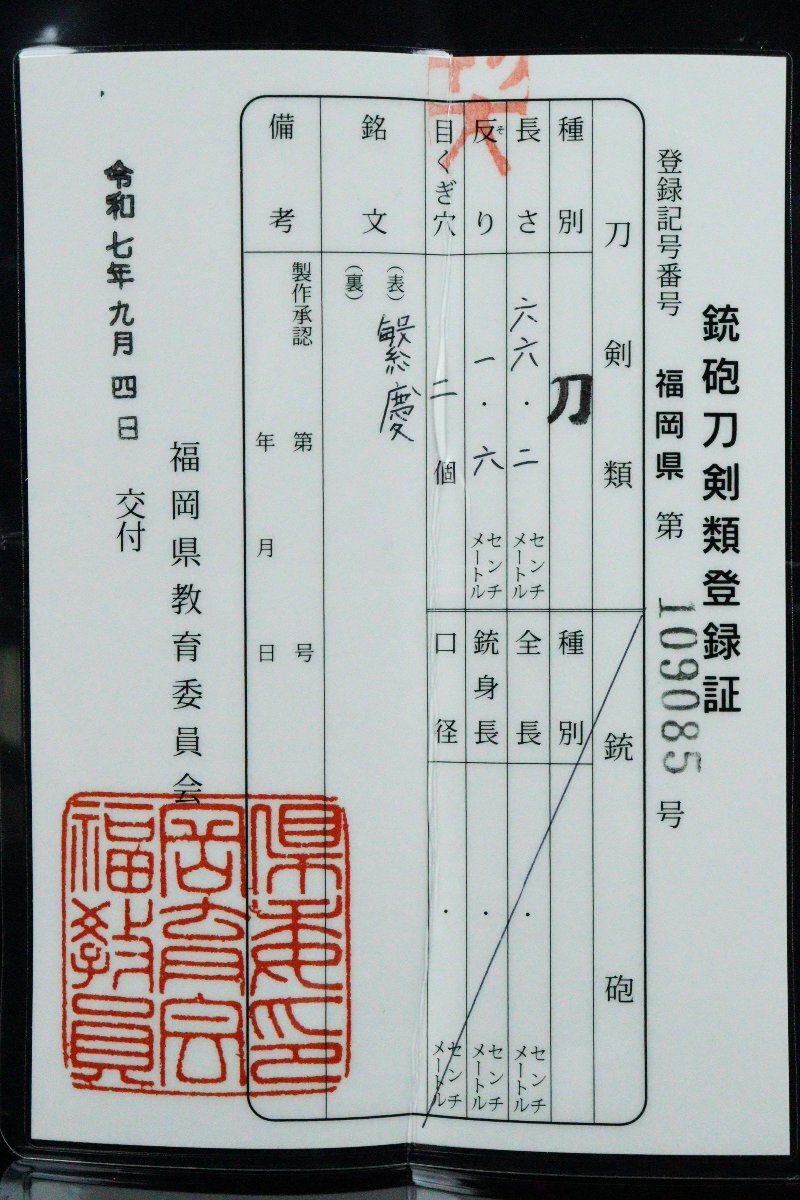 銃砲刀剣類登録証
登録記号番号 福岡県 第 109085 号
刀剣類
種別 刀
長さ 六六・二 センチメートル
反り 一・六 センチメートル
そ
目くぎ穴 二 個
銘文 (表) 繁慶
(裏)
備考 製作承認 第 号
年 月 日
銃砲
種別
全長 ・ センチメートル
銃身長 ・ センチメートル
口径 ・ センチメートル
福岡県教育委員会
令和七年九月四日 交付